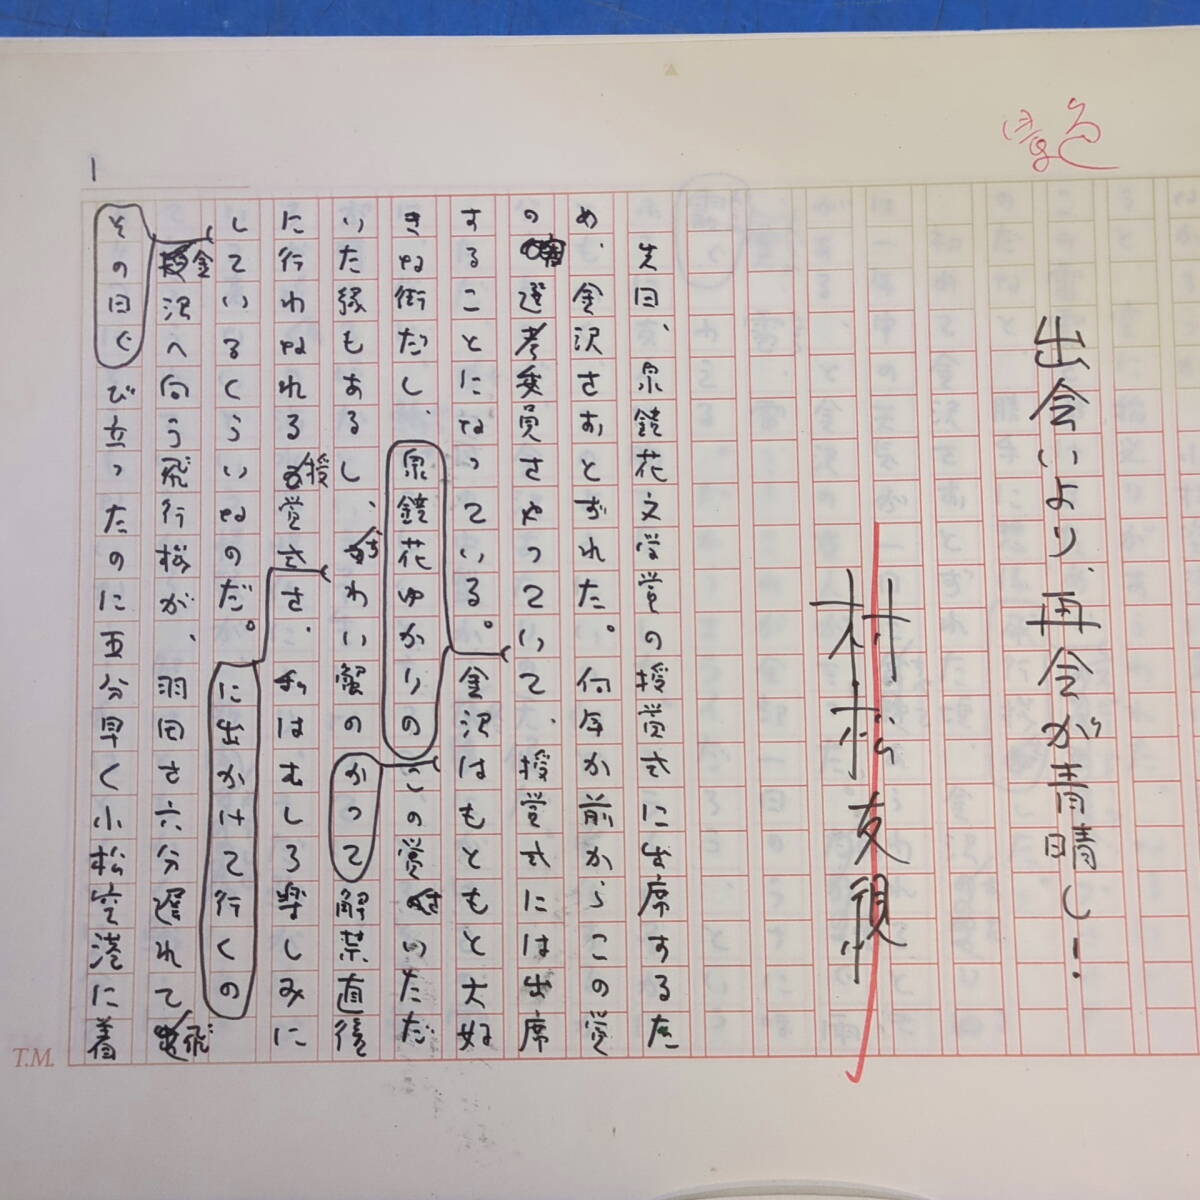 出会いより、再会が素晴し!
村松友視
1
先日、泉鏡花文学賞の授賞式に出席するた
め、金沢をおとずれた。何年か前からこの賞
の選考委員をやっていて、授賞式には出席
することになっている。金沢はもともと大好
きな街だし、泉鏡花ゆかりのこの賞をいただ
いた縁もあるし、ずわい蟹のかつて解禁直後
に行わなれる授賞式を、私はむしろ楽しみに
しているくらいなのだ。に出かけて行くの
金沢へ向う飛行機が、羽田を六分遅れて飛
その日び立ったのに五分早く小松空港に着
T.M.